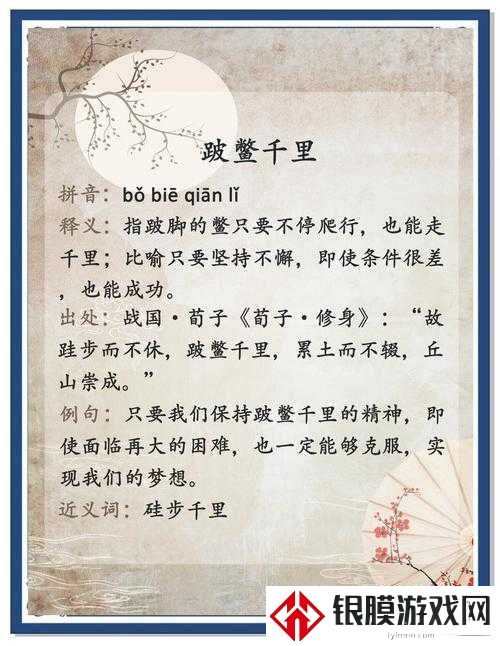 跛鳖千里
拼音：bǒ biē qiān lǐ
释义：指跛脚的鳖只要不停爬行，也能走
千里；比喻只要坚持不懈，即使条件很差
，也能成功。
出处：战国·荀子《荀子·修身》：“故
跬步而不休，跛鳖千里，累土而不辍，丘
山崇成。”
例句：只要我们保持跛鳖千里的精神，即
使面临再大的困难，也一定能够克服，实
现我们的梦想。
近义词：硅步千里
银膜游戏网